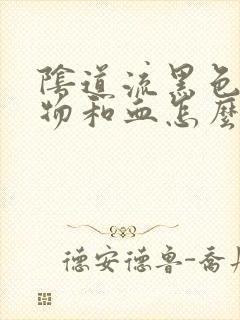 陰道流黑色
物和血怎麼
德安德魯-喬